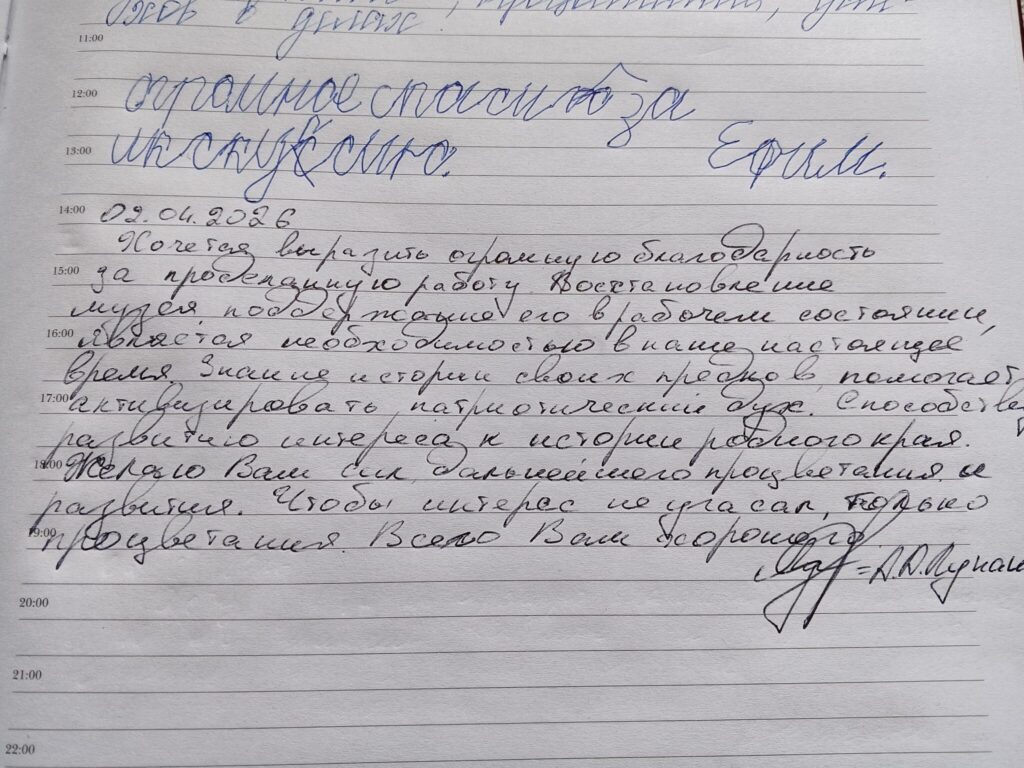 жов в делах
11:00
12:00 огромное спасибо за
13:00 икскурсию. Ефим.
14:00 02.04.2026
Хочется выразить огромную благодарность
15:00 за проделанную работу. Восстановление
музея, поддержание его в рабочем состоянии,
16:00 является необходимостью в наше настоящее
время. Знание истории своих предков, помогает
17:00 активизировать, патриотический дух. Способству
развитию интереса к истории родного края.
18:00 Желаю Вам сил, дальнейшего процветания и
развития. Чтобы интерес не угасал, только
19:00 процветания. Всего Вам хорошего.
20:00
21:00
22:00